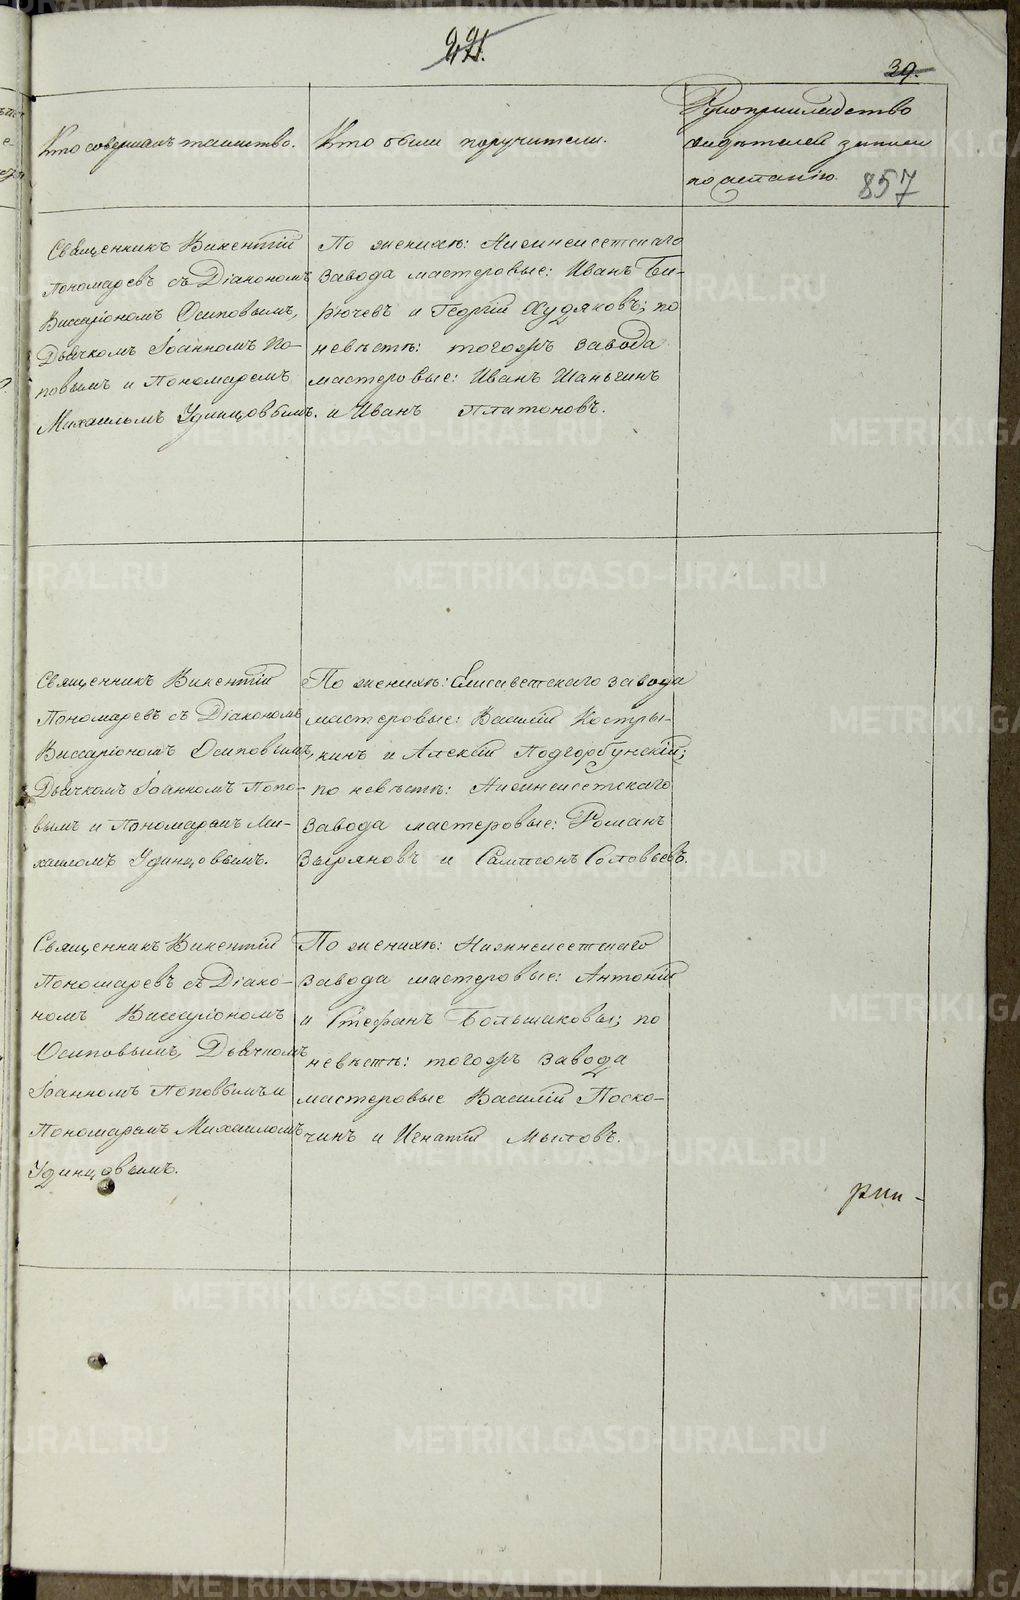 22.
39.
Кто совершалъ таинство.
Кто были поручители.
Рукоприкладство
свидѣтелей записи
по желанію.
857
Священникъ Викентій
Пономаревъ съ Діакономъ
Виссаріономъ Осиповымъ,
Дьячкомъ Іоанномъ По-
повымъ и Пономаремъ
Михаиломъ Удинцовымъ.
По женихѣ: Нижнеисетскаго
завода мастеровые: Иванъ Би-
рючевъ и Георгій Худяковъ; по
невѣстѣ: тогожъ завода
мастеровые: Иванъ Шаньгинъ
и Иванъ Платоновъ.
Священникъ Викентій
Пономаревъ съ Діакономъ
Виссаріономъ Осиповымъ,
Дьячкомъ Іоанномъ Попо-
вымъ и Пономаремъ Ми-
хаиломъ Удинцовымъ.
По женихѣ: Елисаветскаго завода
мастеровые: Василій Костры-
кинъ и Алексій Подгорбунскій;
по невѣстѣ: Нижнеисетскаго
завода мастеровые: Романъ
Зыряновъ и Сампсонъ Соловьевъ.
Священникъ Викентій
Пономаревъ съ Діако-
номъ Виссаріономъ
Осиповымъ, Дьячкомъ
Іоанномъ Поповымъ и
Пономаремъ Михаиломъ
Удинцовымъ.
По женихѣ: Нижнеисетскаго
завода мастеровые: Антоній
и Стефанъ Большаковы; по
невѣстѣ: тогожъ завода
мастеровые Василій Поско-
чинъ и Игнатій Мыловъ.
METRIKI.GASO-URAL.RU